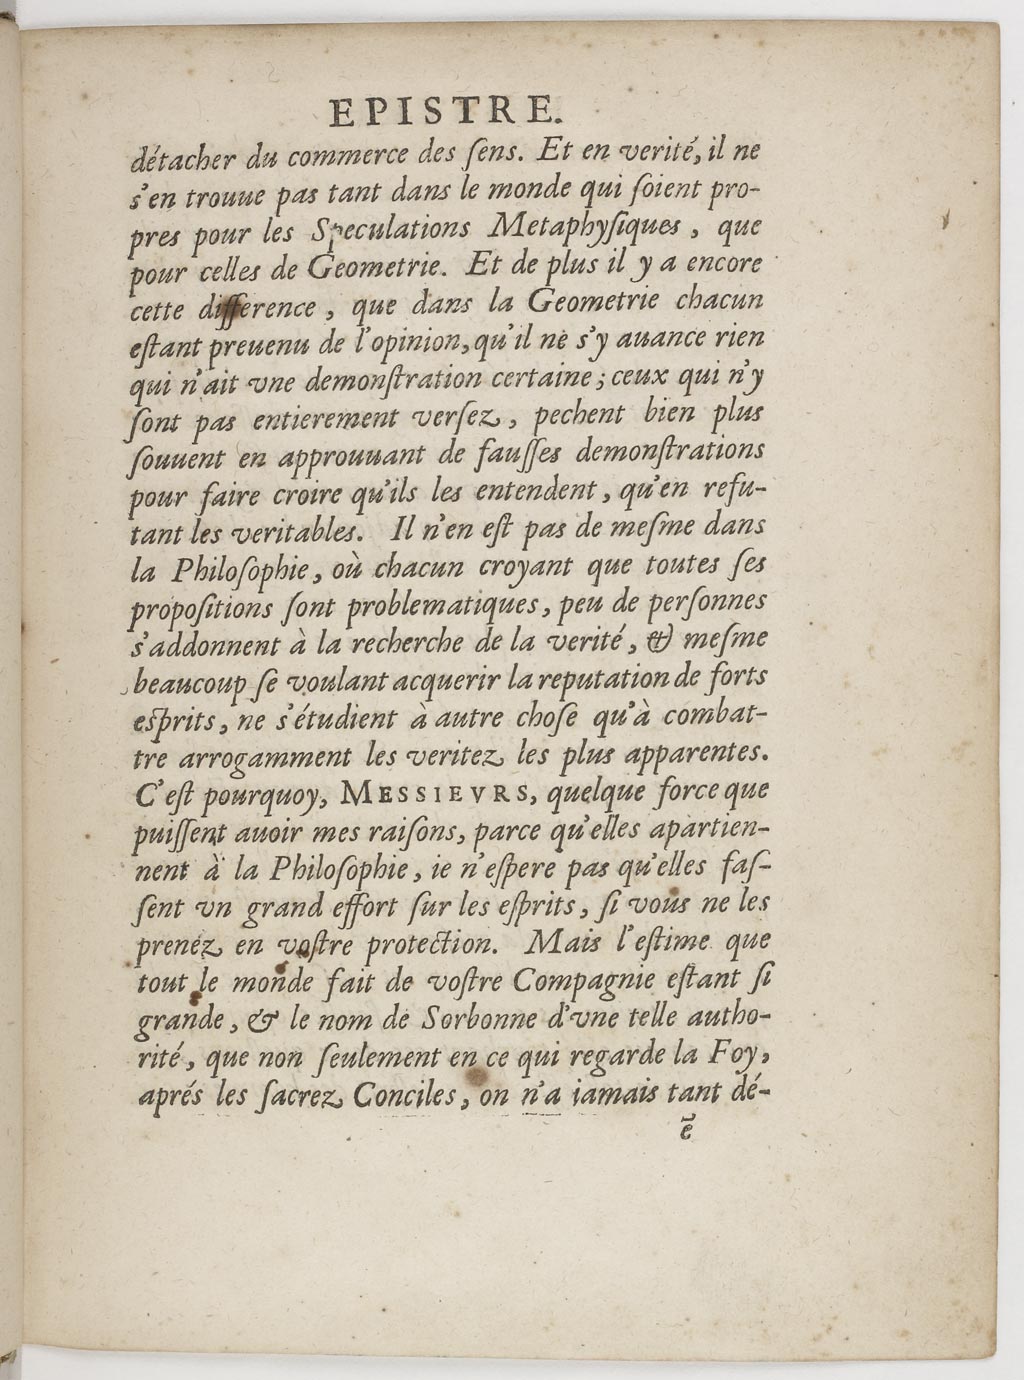 EPISTRE.
détacher du commerce des ſens. Et en verité, il ne
s'en trouue pas tant dans le monde qui ſoient pro-
pres pour les Speculations Metaphyſiques, que
pour celles de Geometrie. Et de plus il y a encore
cette difference, que dans la Geometrie chacun
eſtant preuenu de l'opinion, qu'il ne s'y auance rien
qui n'ait vne demonſtration certaine; ceux qui n'y
ſont pas entierement verſez, pechent bien plus
ſouuent en approuuant de fauſſes demonſtrations
pour faire croire qu'ils les entendent, qu'en refu-
tant les veritables. Il n'en eſt pas de meſme dans
la Philoſophie, où chacun croyant que toutes ſes
propoſitions ſont problematiques, peu de perſonnes
s'addonnent à la recherche de la verité, & meſme
beaucoup ſe voulant acquerir la reputation de forts
eſprits, ne s'étudient à autre choſe qu'à combat-
tre arrogamment les veritez les plus apparentes.
C'eſt pourquoy, MESSIEVRS, quelque force que
puiſſent auoir mes raiſons, parce qu'elles apartien-
nent à la Philoſophie, ie n'eſpere pas qu'elles faſ-
ſent vn grand effort ſur les eſprits, ſi vous ne les
prenez en voſtre protection. Mais l'eſtime que
tout le monde fait de voſtre Compagnie eſtant ſi
grande, & le nom de Sorbonne d'vne telle autho-
rité, que non ſeulement en ce qui regarde la Foy,
aprés les ſacrez Conciles, on n'a iamais tant dé-
ē